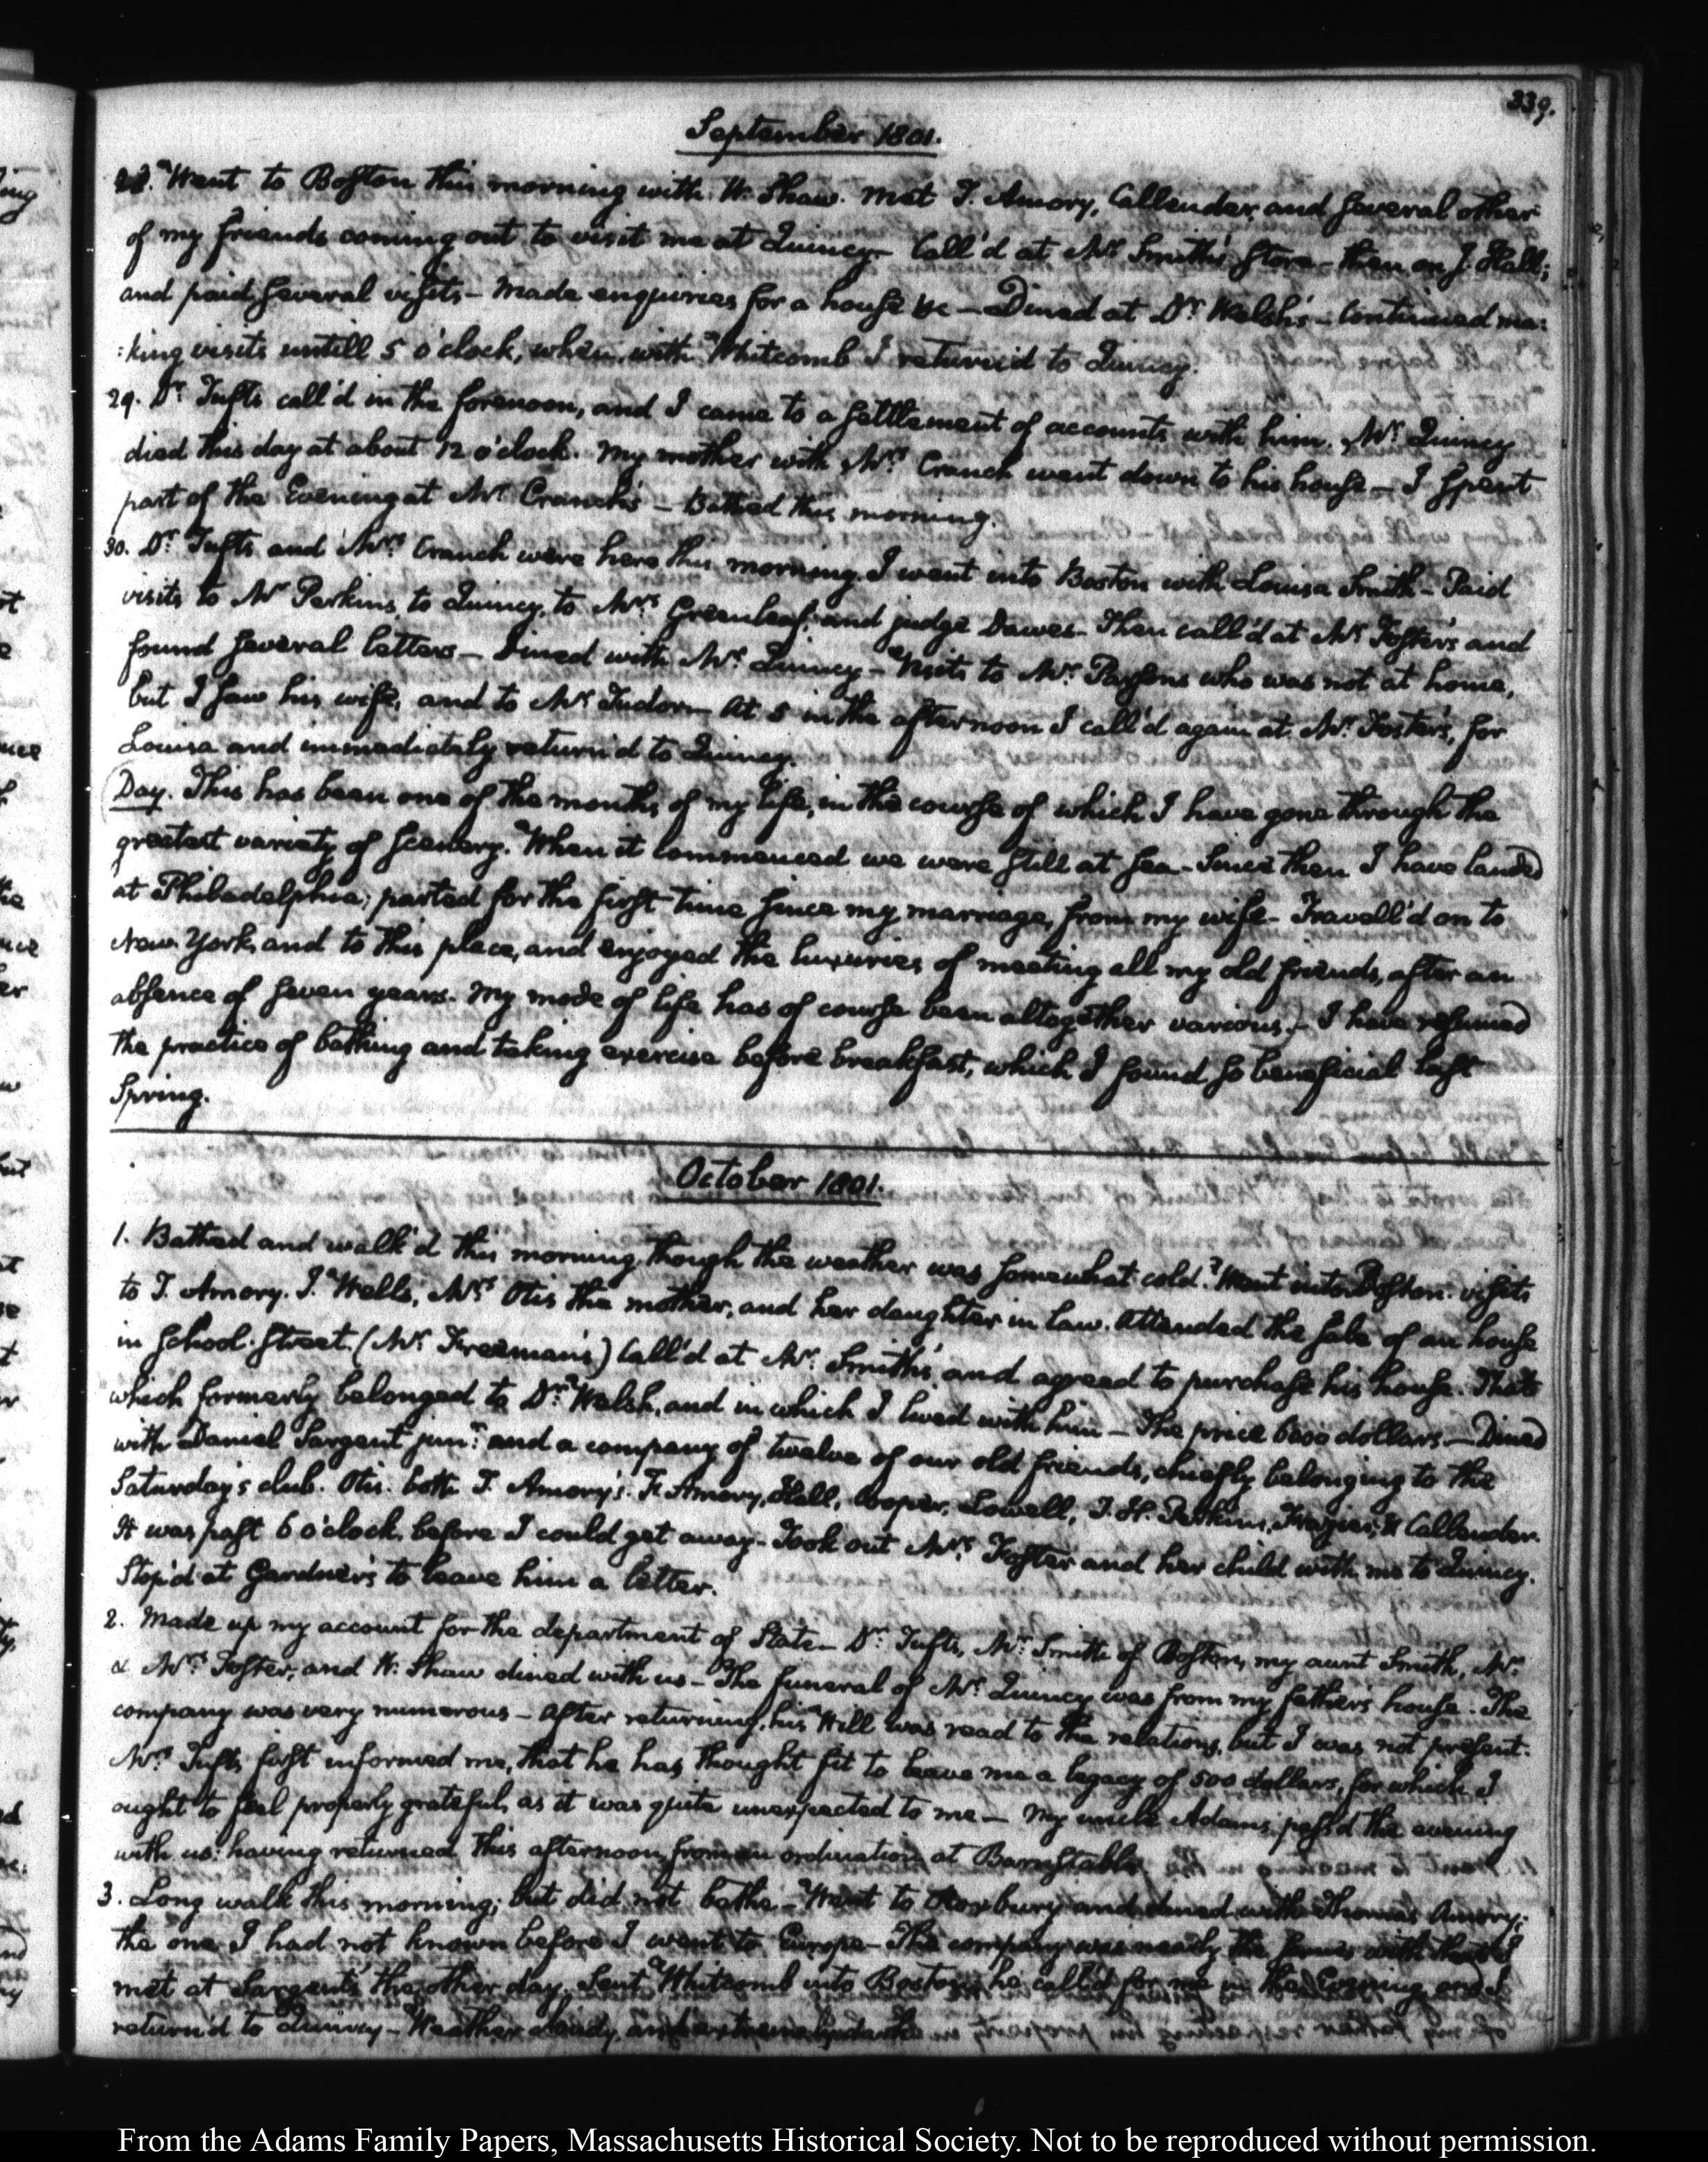 339.
September 1801.
28. Went to Boston this morning with W. Shaw. Met T. Amory, Callender, and several other
of my friends coming out to visit me at Quincy. Call'd at Mr. Smith's store — then on J. Hall;
and paid several visits — Made enquiries for a house &c — Dined at Dr. Welsh's — Continued ma:
:king visits untill 5 o'clock, when, with Whitcomb I return'd to Quincy.
29. Dr. Tufts call'd in the forenoon, and I came to a settlement of accounts with him. Mr. Quincy
died this day at about 12 o'clock. My mother with Mrs. Cranch went down to his house — I spent
part of the Evening at Mr. Cranch's — Bathed this morning.
30. Dr. Tufts and Mrs. Cranch were here this morning. I went into Boston with Louisa Smith — Paid
visits to Mr. Perkins, to Quincy, to Mrs. Greenleaf, and judge Dawes. Then call'd at Mr. Foster's and
found several letters — Dined with Mr. Quincy — Visits to Mr. Parsons who was not at home,
but I saw his wife, and to Mr. Tudor — At 5 in the afternoon I call'd again at Mr. Foster's, for
Louisa and immediately return'd to Quincy.
Day. This has been one of the months of my life, in the course of which I have gone through the
greatest variety of scenery. When it commenced we were still at sea — Since then I have landed
at Philadelphia; parted for the first time since my marriage, from my wife — Travell'd on to
New-York, and to this place, and enjoyed the luxuries of meeting all my old friends, after an
absence of seven years. My mode of life has of course been altogether various. — I have resumed
the practice of bathing and taking exercise before breakfast, which I found so beneficial last
Spring.
October 1801.
1. Bathed and walk'd this morning, though the weather was somewhat cold. Went into Boston. visits
to T. Amory. J. Wells, Mrs. Otis the mother, and her daughter in law. Attended the sale of an house
in School-Street. (Mr. Freeman's) Call'd at Mr. Smith's, and agreed to purchase his house. That
which formerly belonged to Dr. Welsh, and in which I lived with him — The price 6000 dollars — Dined
with Daniel Sargent junr. and a company of twelve of our old friends, chiefly belonging to the
Saturday's club. Otis. both T. Amory's. F. Amory, Hall, Cooper, Lowell, T. H. Perkins, Frazier, & Callender.
It was past 6 o'clock, before I could get away — Took out Mrs. Foster and her child with me to Quincy.
Stop'd at Gardner's to leave him a letter.
2. Made up my account for the department of State — Dr. Tufts, Mr. Smith of Boston, my aunt Smith, Mr.
& Mrs. Foster, and W. Shaw dined with us — The funeral of Mr. Quincy was from my father's house. The
company was very numerous — After returning, his Will was read to the relations, but I was not present.
Mrs. Tufts first informed me, that he has thought fit to leave me a legacy of 500 dollars, for which I
ought to feel properly grateful, as it was quite unexpected to me — My uncle Adams pass'd the evening
with us: having returned this afternoon from an ordination at Barnstable.
3. Long walk this morning; but did not bathe — Went to Roxbury and dined with Thomas Amory;
the one I had not known before I went to Europe — The company was nearly the same with that I
met at Sargent's the other day. Sent Whitcomb into Boston; he call'd for me in the Evening, and I
return'd to Quincy — Weather cloudy, and extremely dark.
From the Adams Family Papers, Massachusetts Historical Society. Not to be reproduced without permission.